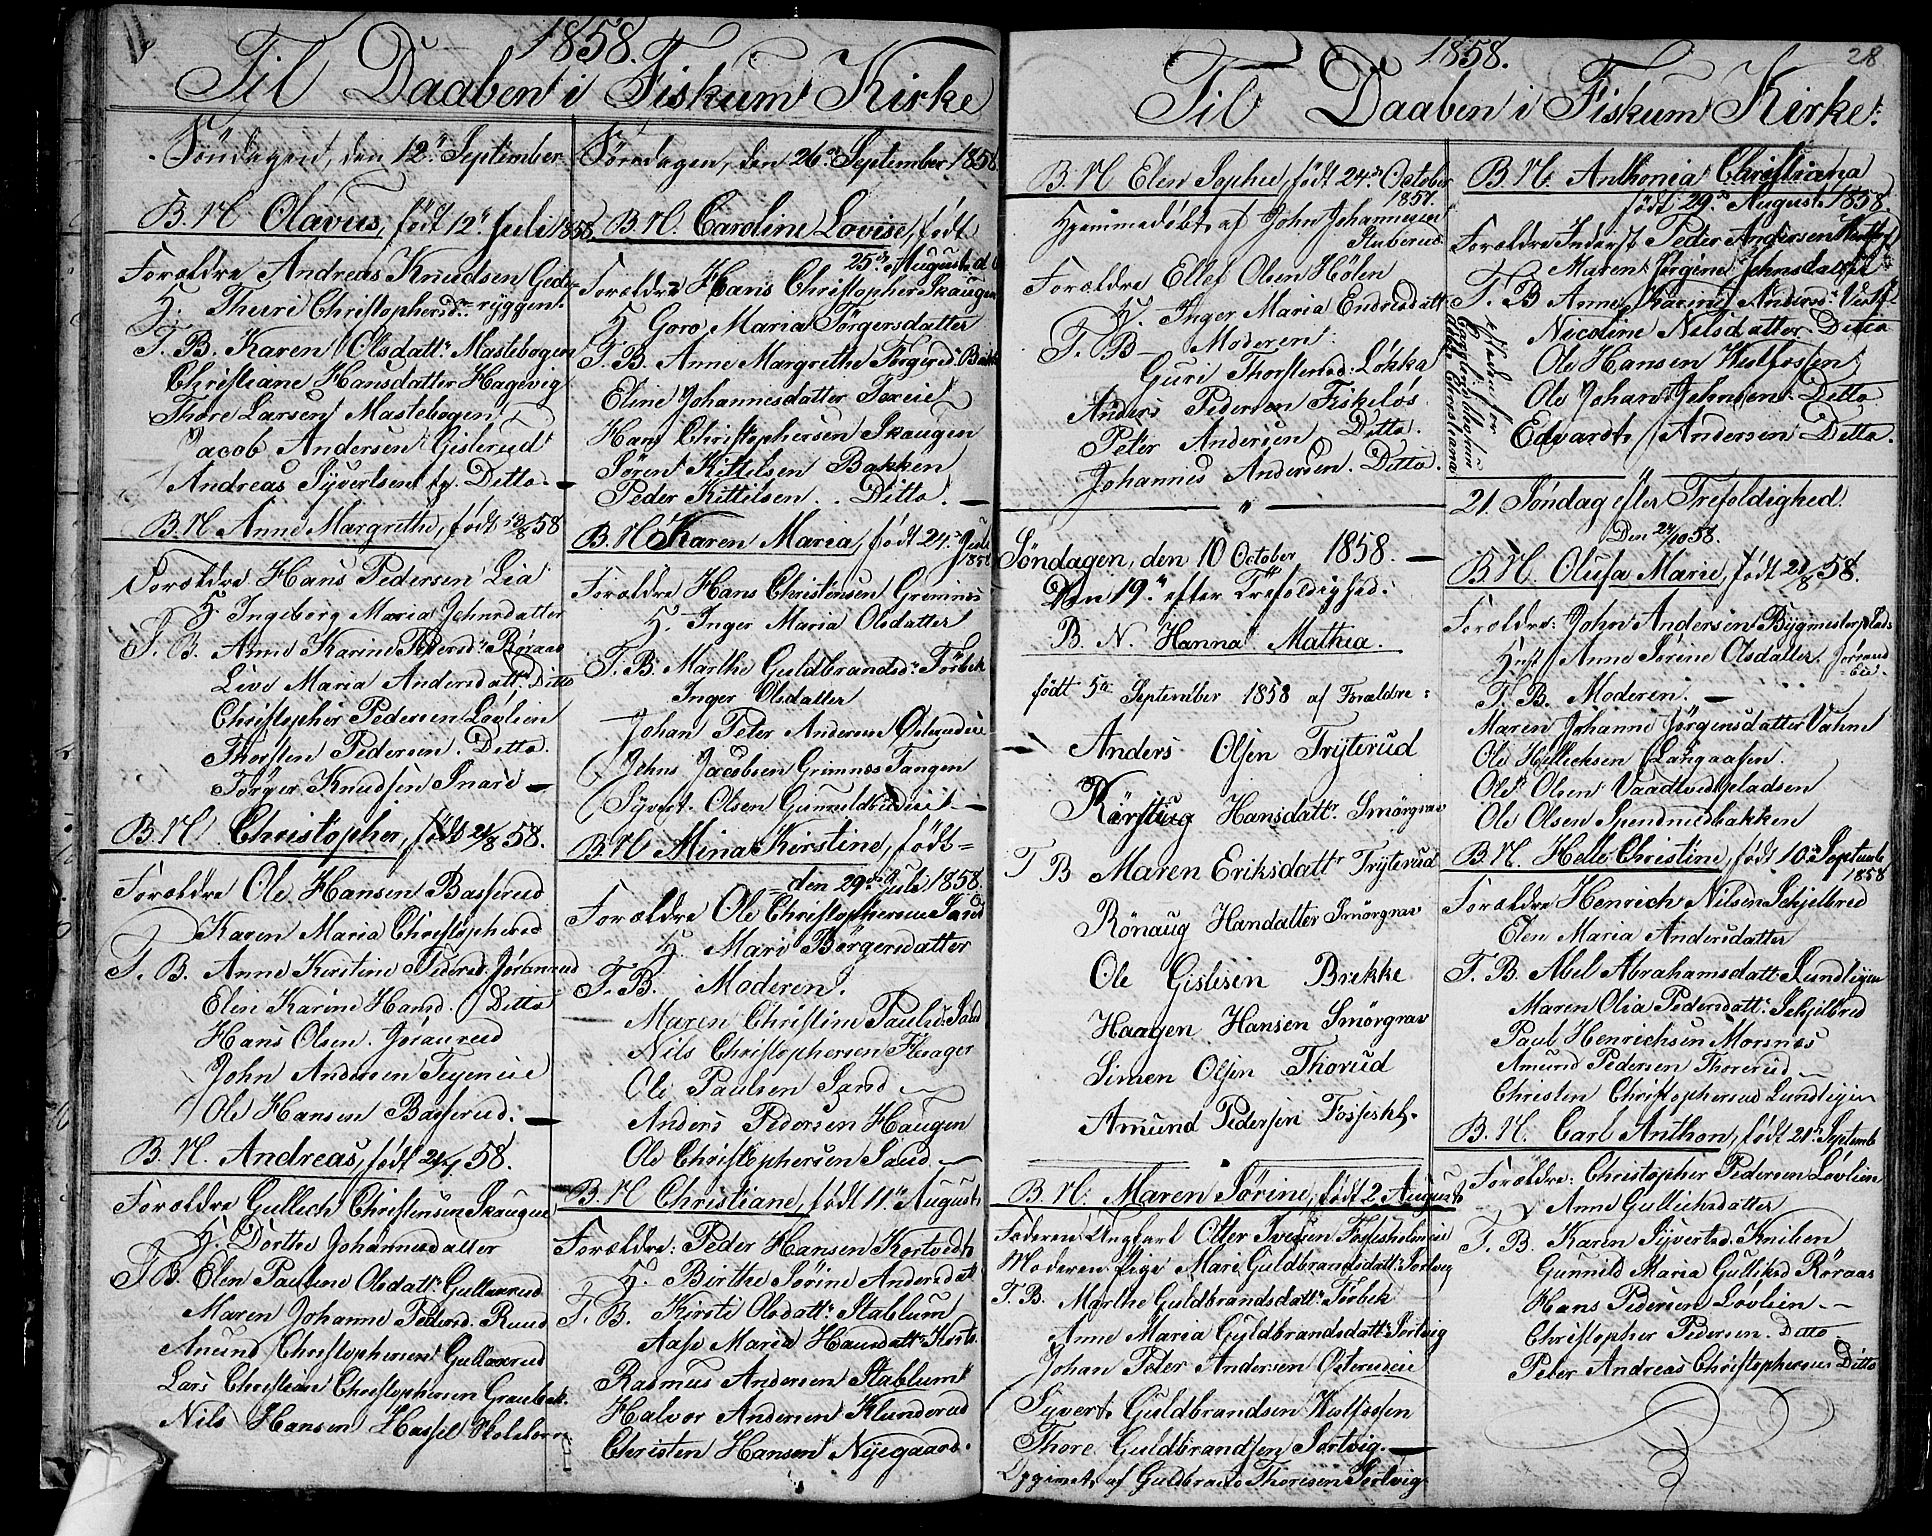 1858.
Til Daaben i Fiskum Kirke
Søndagen, den 12te September
B. N. Olavus, født 12te Juli 1858
Forældre Andreas Knudsen Gede-
H. Thuri Christophersd. ryggen
T. B. Karen Olsdattr. Mastebogen
Christiane Hansdatter Hagevig
Thore Larsen Mastebogen
Jacob Andersen Gislerud
Andreas Syvertsen Ditto
B. N. Anne Margrethe, født 13/8 58
Forældre Hans Pedersen Lia
H. Ingeborg Maria Johnsdatter
T. B. Anne Karine Pedersd. Røraas
Live Maria Andersdattr. Ditto
Christopher Pedersen Løvlien
Thorsten Pedersen. Ditto.
Torger Knudsen Snare
B. N. Christopher, født 21/8 58.
Forældre Ole Hansen Basserud
Karen Maria Christophersd
T. B. Anne Kirstine Pedersd. Jøranrud
Elen Karine Hansd. Ditto
Hans Olsen. Jøranrud
John Andersen Teyeneie
Ole Hansen Basserud.
B. N. Andreas, født 21/7 58.
Forældre Gullich Christensen Skaugen
H. Dorthe Johannesdatter
T. B. Elen Pauline Olsdattr. Gullaxrud
Maren Johanne Pedersd. Ruud
Anund Christophersen Gullaxrud
Lars Christian Christophersen Graubek.
Nils Hansen Hassel
Søndagen, den 26de September 1858
B. N. Caroline Lovise, født
25de August d.
Forældre Hans Christophersen Skaugen
H. Goro Maria Torgersdatter
T. B. Anne Margrethe Torgersd.
Eline Johannesdatter
Hans Christophersen Skaugen
Søren Kittilsen Bakken
Peder Kittilsen. Ditto.
B. N. Karen Maria, født 24de Juli
1858
Forældre Hans Christensen Grimnes
H. Inger Maria Olsdatter
T. B. Marthe Guldbrandsd. Torbek
Inger Olsdatter
Johan Peter Andersen Østerudeie
Jehns Jacobsen Grimnes Tangen
Syvert Olsen Gunnuldrudeie
B. N. Mina Kirstine, født
den 29de Juli 1858.
Forældre Ole Christophersen Sand
H. Mari Børgersdatter
T. B. Moderen.
Maren Christine Paulsd. Sand
Nils Christophersen Flesager
Ole Paulsen Sand
Anders Pedersen Haugen
Ole Christophersen Sand.
B. N. Christiane, født 11te August
Forældre: Peder Hansen Kortvedt
H. Birthe Sørine Andersdatt
T. B. Kirsti Olsdattr. Stablum
Aase Maria Hansdattr. Kortv.
Rasmus Andersen Stablum
Halvor Andersen Klunderud
Christen Hansen Nyegaard.
1858.
28
Til Daaben i Fiskum Kirke.
B. N. Elen Sophie, født 24de October
1857.
Hjemmedøbt af John Johannesen
Stuberud
Forældre Ellef Olsen Hølen
H. Inger Maria Endresdatt
T. B. Moderen
Guri Thorstensd. Løkka
Anders Pedersen Fiskeløs
Peter Andersen Ditto.
Johannes Andersen. Ditto.
Søndagen, den 10 October 1858.
Den 19de efter Trefoldighed.
B. N. Hanna Mathea.
født 5te September 1858 af Forældre:
Anders Olsen Tryterud
Hansdattr. Smörgrav
T B Maren Eriksdattr Tryterud
Rönaug Hansdatter Smörgrav
Ole Gislesen Brekke
Haagen Hansen Smörgrav
Simen Olsen Thorud
Amund Pedersen Fossesh.
B. N. Maren Sørine, født 2 August
Faderen: Ungkarl Otter Iversen Fossesholmeie
Moderen Pige Mari Guldbrandsdattr. Sortvig
T. B. Marthe Guldbrandsdattr. Torbek
Anne Maria Guldbrandsdattr. Sortvig
Johan Peter Andersen Østerudeie
Syvert Guldbrandsen Westfossen
Thore Guldbrandsen Sortvig.
Opgivet af Guldbrand Thoresen Sortvig
B. N. Anthonia Christiana
født 29de August 1858.
Forældre Inderst Peder Andersen Westfos
Maren Jørgine Jehnsdatter
T. B. Anne Karine Andersd. Vestf
Nicoline Nilsdatter. Ditto
Ole Hansen Westfossen
Ole Johan Jehnsen. Ditto
Edvardt Andersen Ditto.
21. Søndag efter Trefoldighed.
Den 24/10 58.
B. N. Olufa Marie, født 21/8 58.
Forældre: John Andersen Bygmesterplads
Hust Anne Sørine Olsdatter. Jørand
eie.
T. B. Moderen.
Maren Johanne Jørgensdatter Vahne
Ole Hellecksen Langaasen.
Ole Olsen Vaadtvedtpladsen
Ole Olsen Spendmedbakken
B. N. Helle Christine, født 10de Septemb
1858
Forældre Henrich Nilsen Schjelbred
Elen Maria Andersdatter
T. B. Abel Abrahamsdattr. Lundteigen
Maren Olia Pedersdattr. Schjelbred
Paul Henrichsen Morsnes
Amund Pedersen Thorerud
Christen Christophersen Lundteigen
B. N. Carl Anthon, født 21de Septemb
Forældre: Christopher Pedersen Løvlien
Anne Gullichsdatter
T. B. Karen Syvertsd. Kniben
Gunnild Maria Gulliksd Røraas
Hans Pedersen Løvlien
Christopher Pedersen. Ditto
Peter Andreas Christophersen Ditto